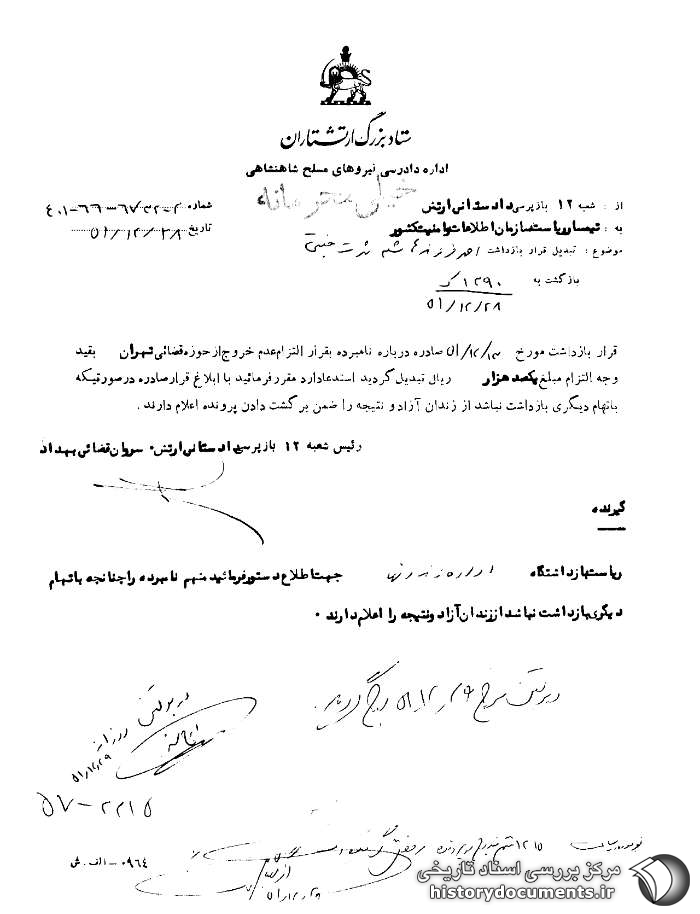 ستاد بزرگ ارتشتاران
اداره دادرسی نیروهای مسلح شاهنشاهی
خیلی محرمانه
از : شعبه ۱۲ بازپرسی دادستانی ارتش
شماره ۴۰۱-۶۶-۶۷۳۲-۲
به : تیمسار ریاست سازمان اطلاعات و امنیت کشور
تاریخ ۵۱/۱۲/۲۸
موضوع : تبدیل قرار بازداشت احمد فرزند
بازگشت به ۱۲۹۰
۵۱/۱۲/۲۸
قرار بازداشت مورخ ۵۱/۱۲/۱۳ صادره درباره نامبرده بقرار التزام عدم خروج از حوزه قضائی تهران بقید
وجه التزام مبلغ یکصد هزار ریال تبدیل گردید استدعا دارد مقرر فرمائید با ابلاغ قرار صادره در صورتیکه
باتهام دیگری بازداشت نباشد از زندان آزاد و نتیجه را ضمن برگشت دادن پرونده اعلام دارند .
رئیس شعبه ۱۲ بازپرسی دادستانی ارتش . سروان قضائی بهداد
گیرنده
ریاست بازداشتگاه اداره زندانها جهت اطلاع دستور فرمائید متهم نامبرده را چنانچه باتهام
دیگری بازداشت نباشد از زندان آزاد و نتیجه را اعلام دارند .
۵۱/۱۲/۲۹
۵۱/۱۲/۲۹
۵۷-۲۲۱۵
۱۲۱۵
۰۹۶۴-الف.ش
۵۱/۱۲/۲۹
مرکز بررسی اسناد تاریخی
historydocuments.ir